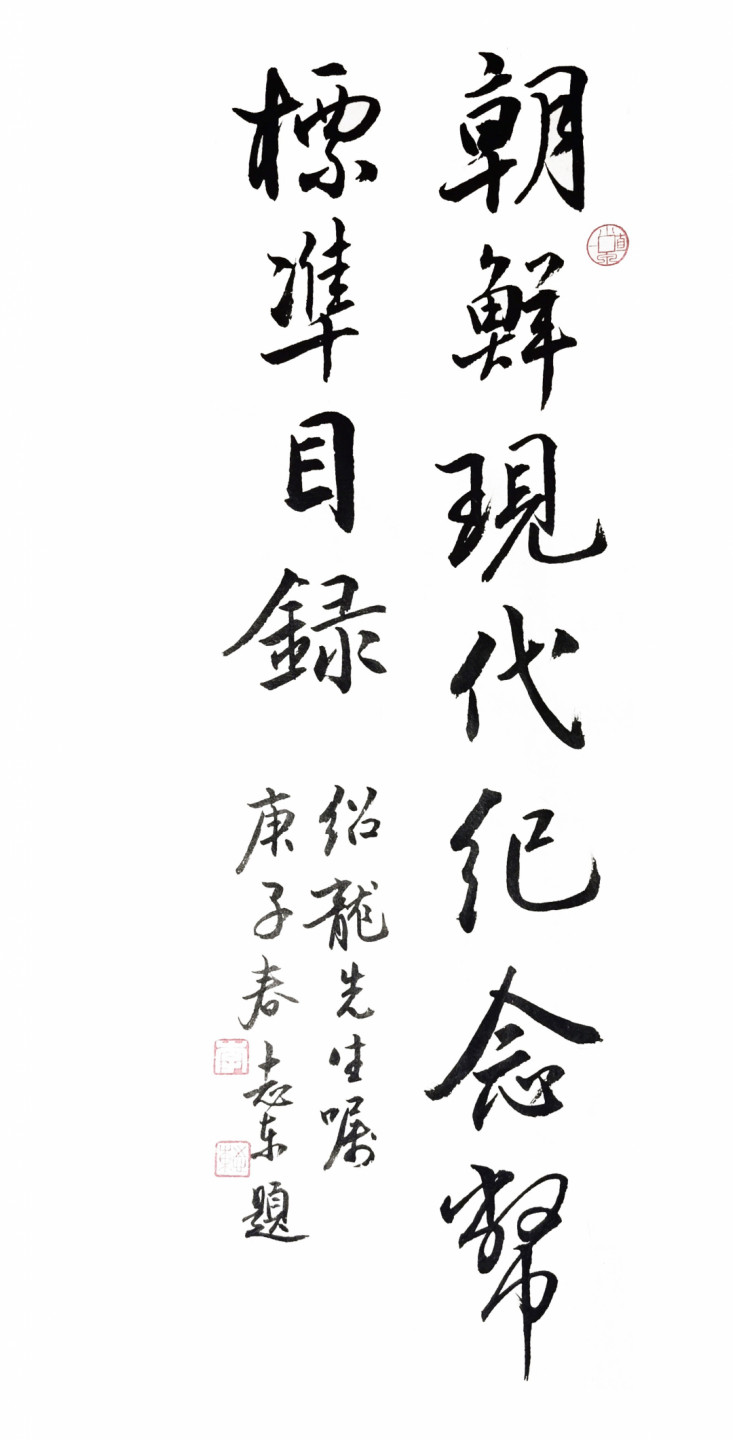 朝鮮現代紀念幣
標準目録
紹龍先生嘱
庚子春志东題